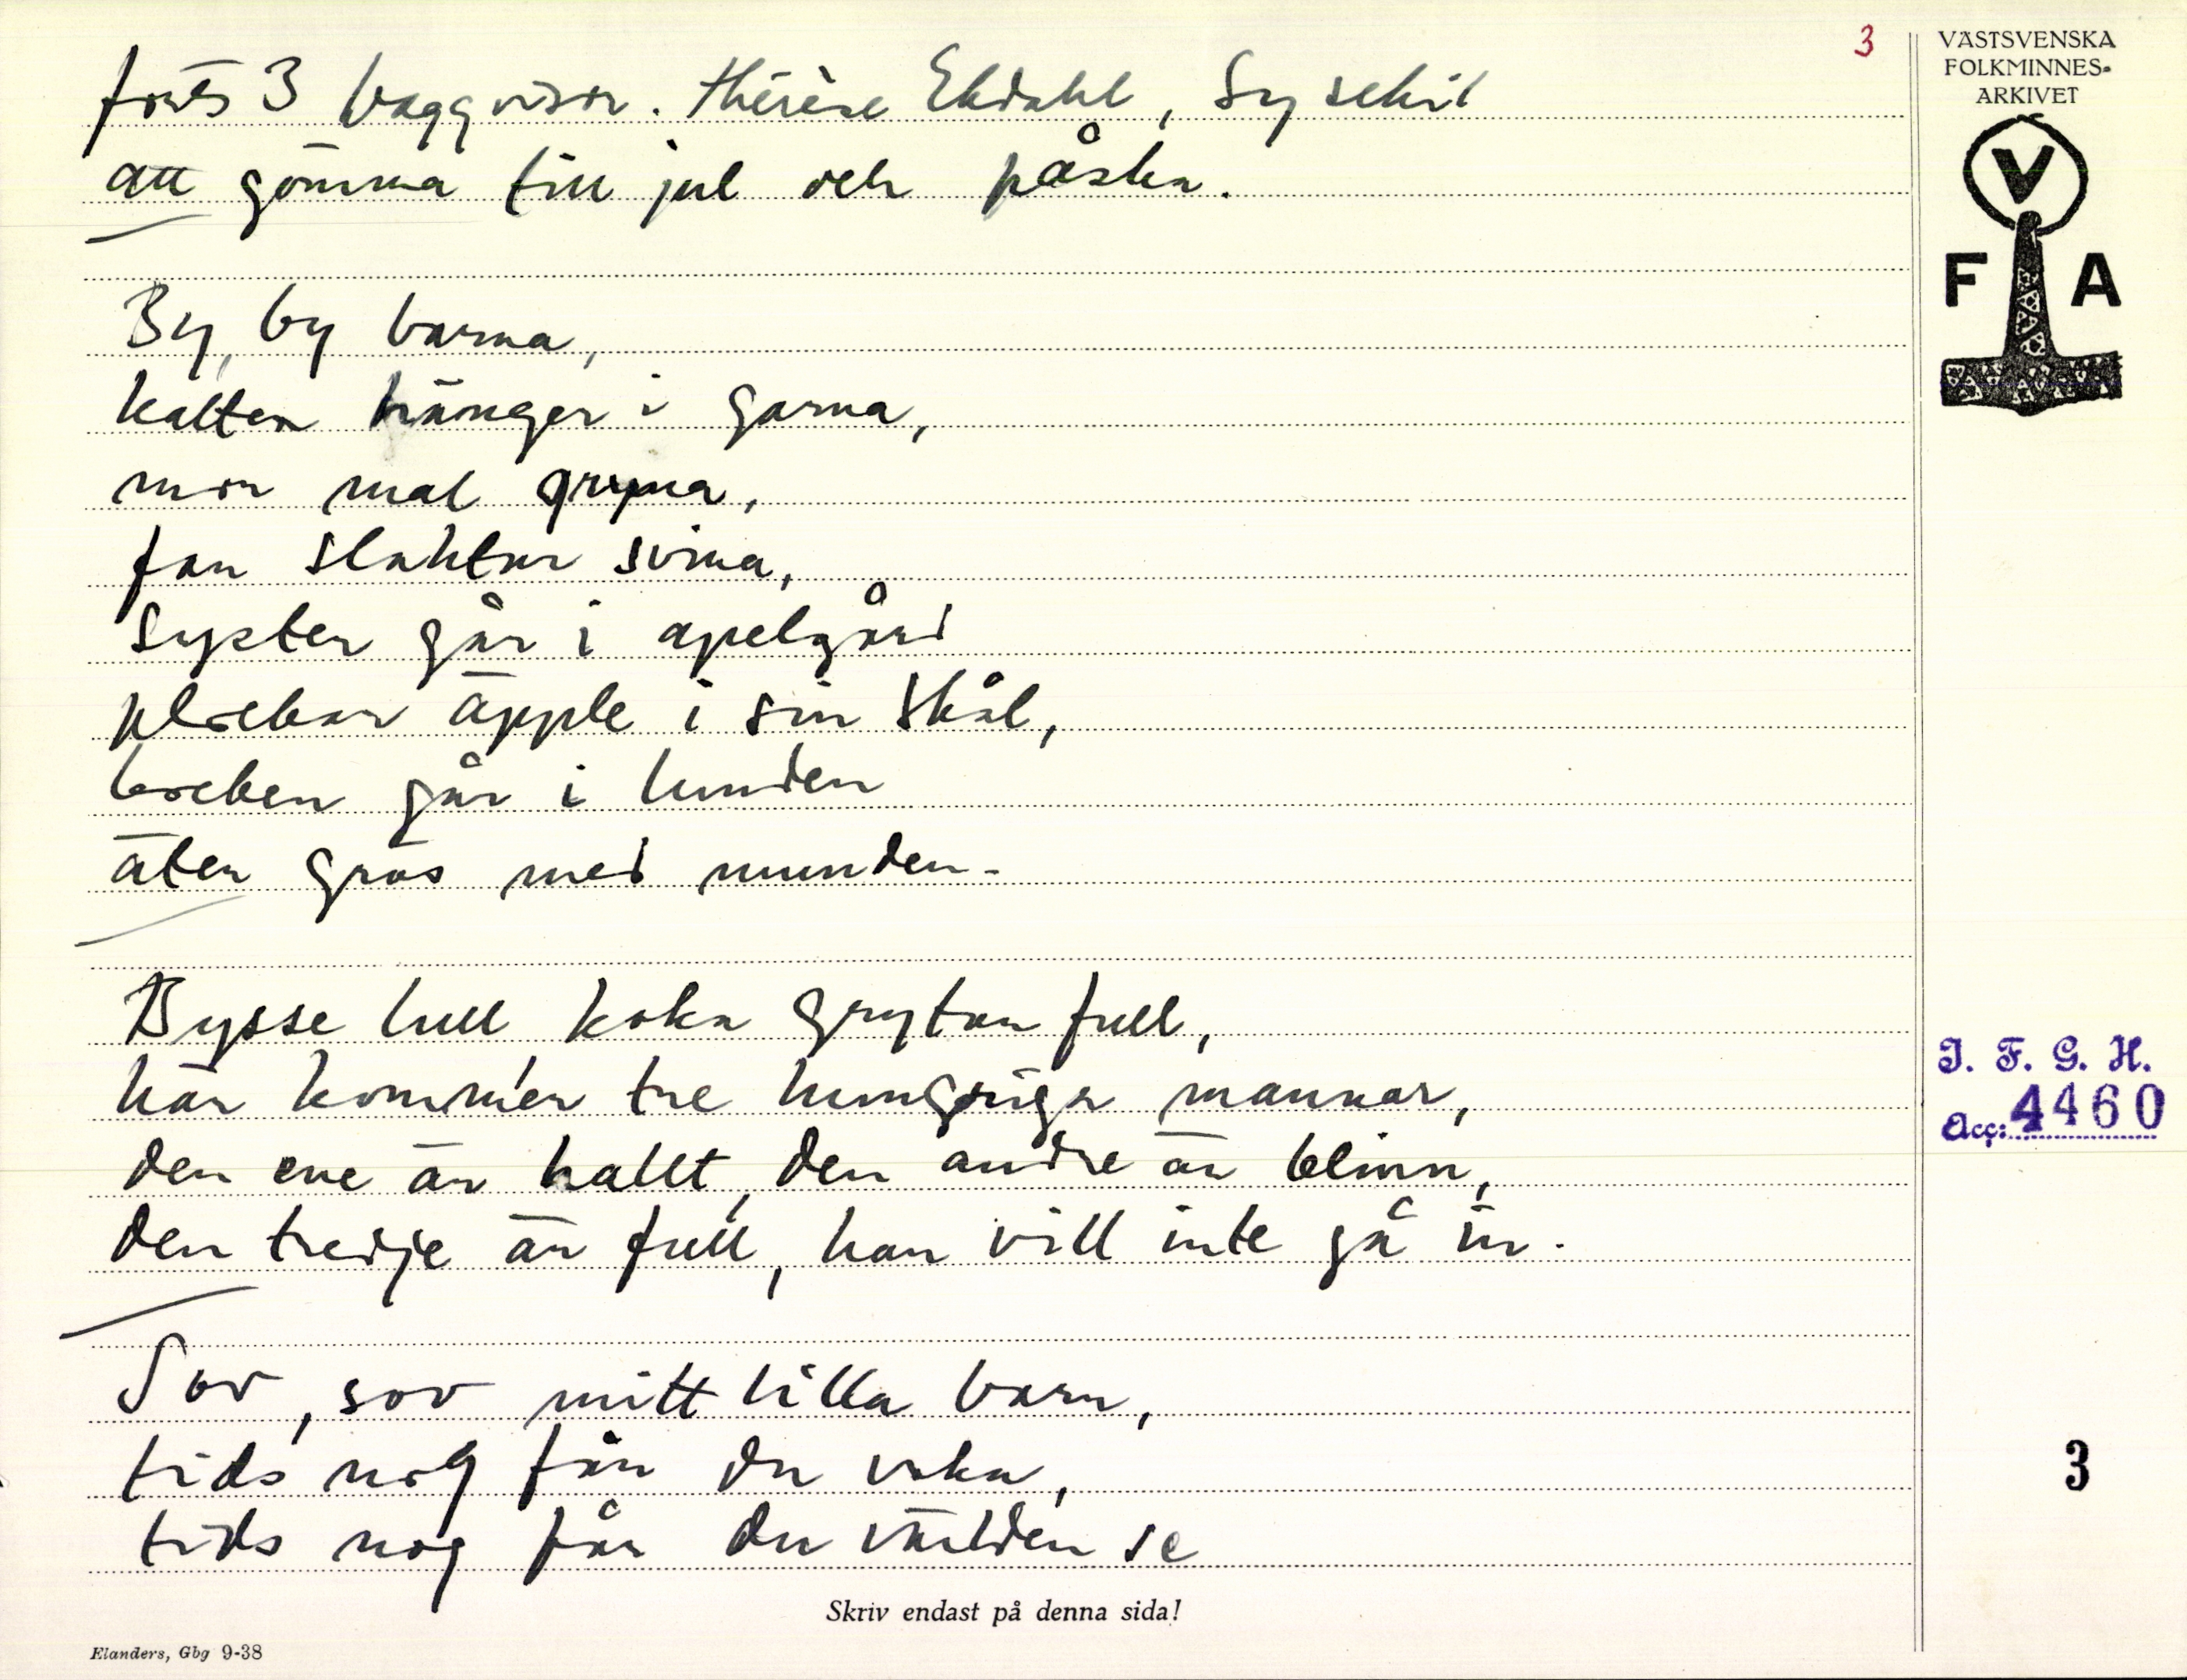 3
forts 3 Vaggvisor. Thérèse Ekdahl, Lysekil
att gömma till jul och påska.
By, by barna,
katten hänger i garna,
mor mal gryna,
far slaktar svina,
Syster går i apelgård
plockar äpple i sin skål,
bocken går i lunden
äter gräs med munden.
Bysse lull koka grytan full,
här kommer tre hungriga mannar,
den ene är hallt, den andre är blinn,
den tredje är full, han vill inte gå in.
Sov, sov mitt lilla barn,
tids nog får du vaka,
tids nog får du världen se
Skriv endast på denna sida!
Elanders, Gbg 9-38
VÄSTSVENSKA
FOLKMINNES-
ARKIVET
V
F A
I. F. G. H.
Acc: 4460
3